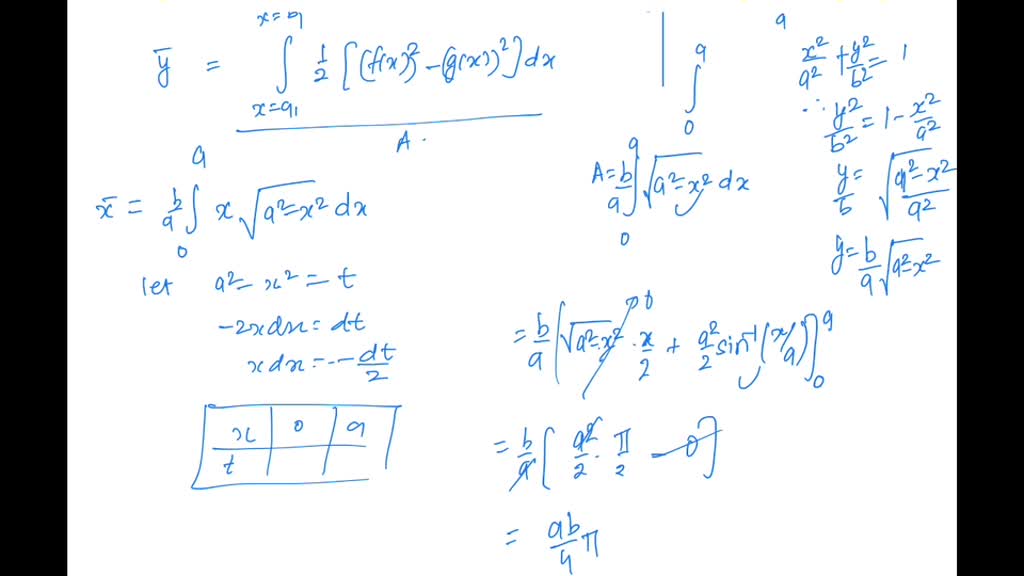 x=a
ȳ = ∫ 1/2 [(f(x))² - (g(x))²] dx
x=a₁
A
a
∫
0
a
x²/a² + y²/b² = 1
∴ y²/b² = 1 - x²/a²
y/b = √(a²-x²/a²)
y = b/a √a²-x²
A = b/a ∫₀ᵃ √a²-x² dx
x̄ = b/a ∫₀ᵃ x √a²-x² dx
let a² - x² = t
-2x dx = dt
x dx = - dt/2
x 0 a
t
= b/a [√a²-x² · x/2 + a²/2 sin⁻¹(x/a)]₀ᵃ
0
= b/a [a²/2 · π/2 - 0]
= ab/4 π